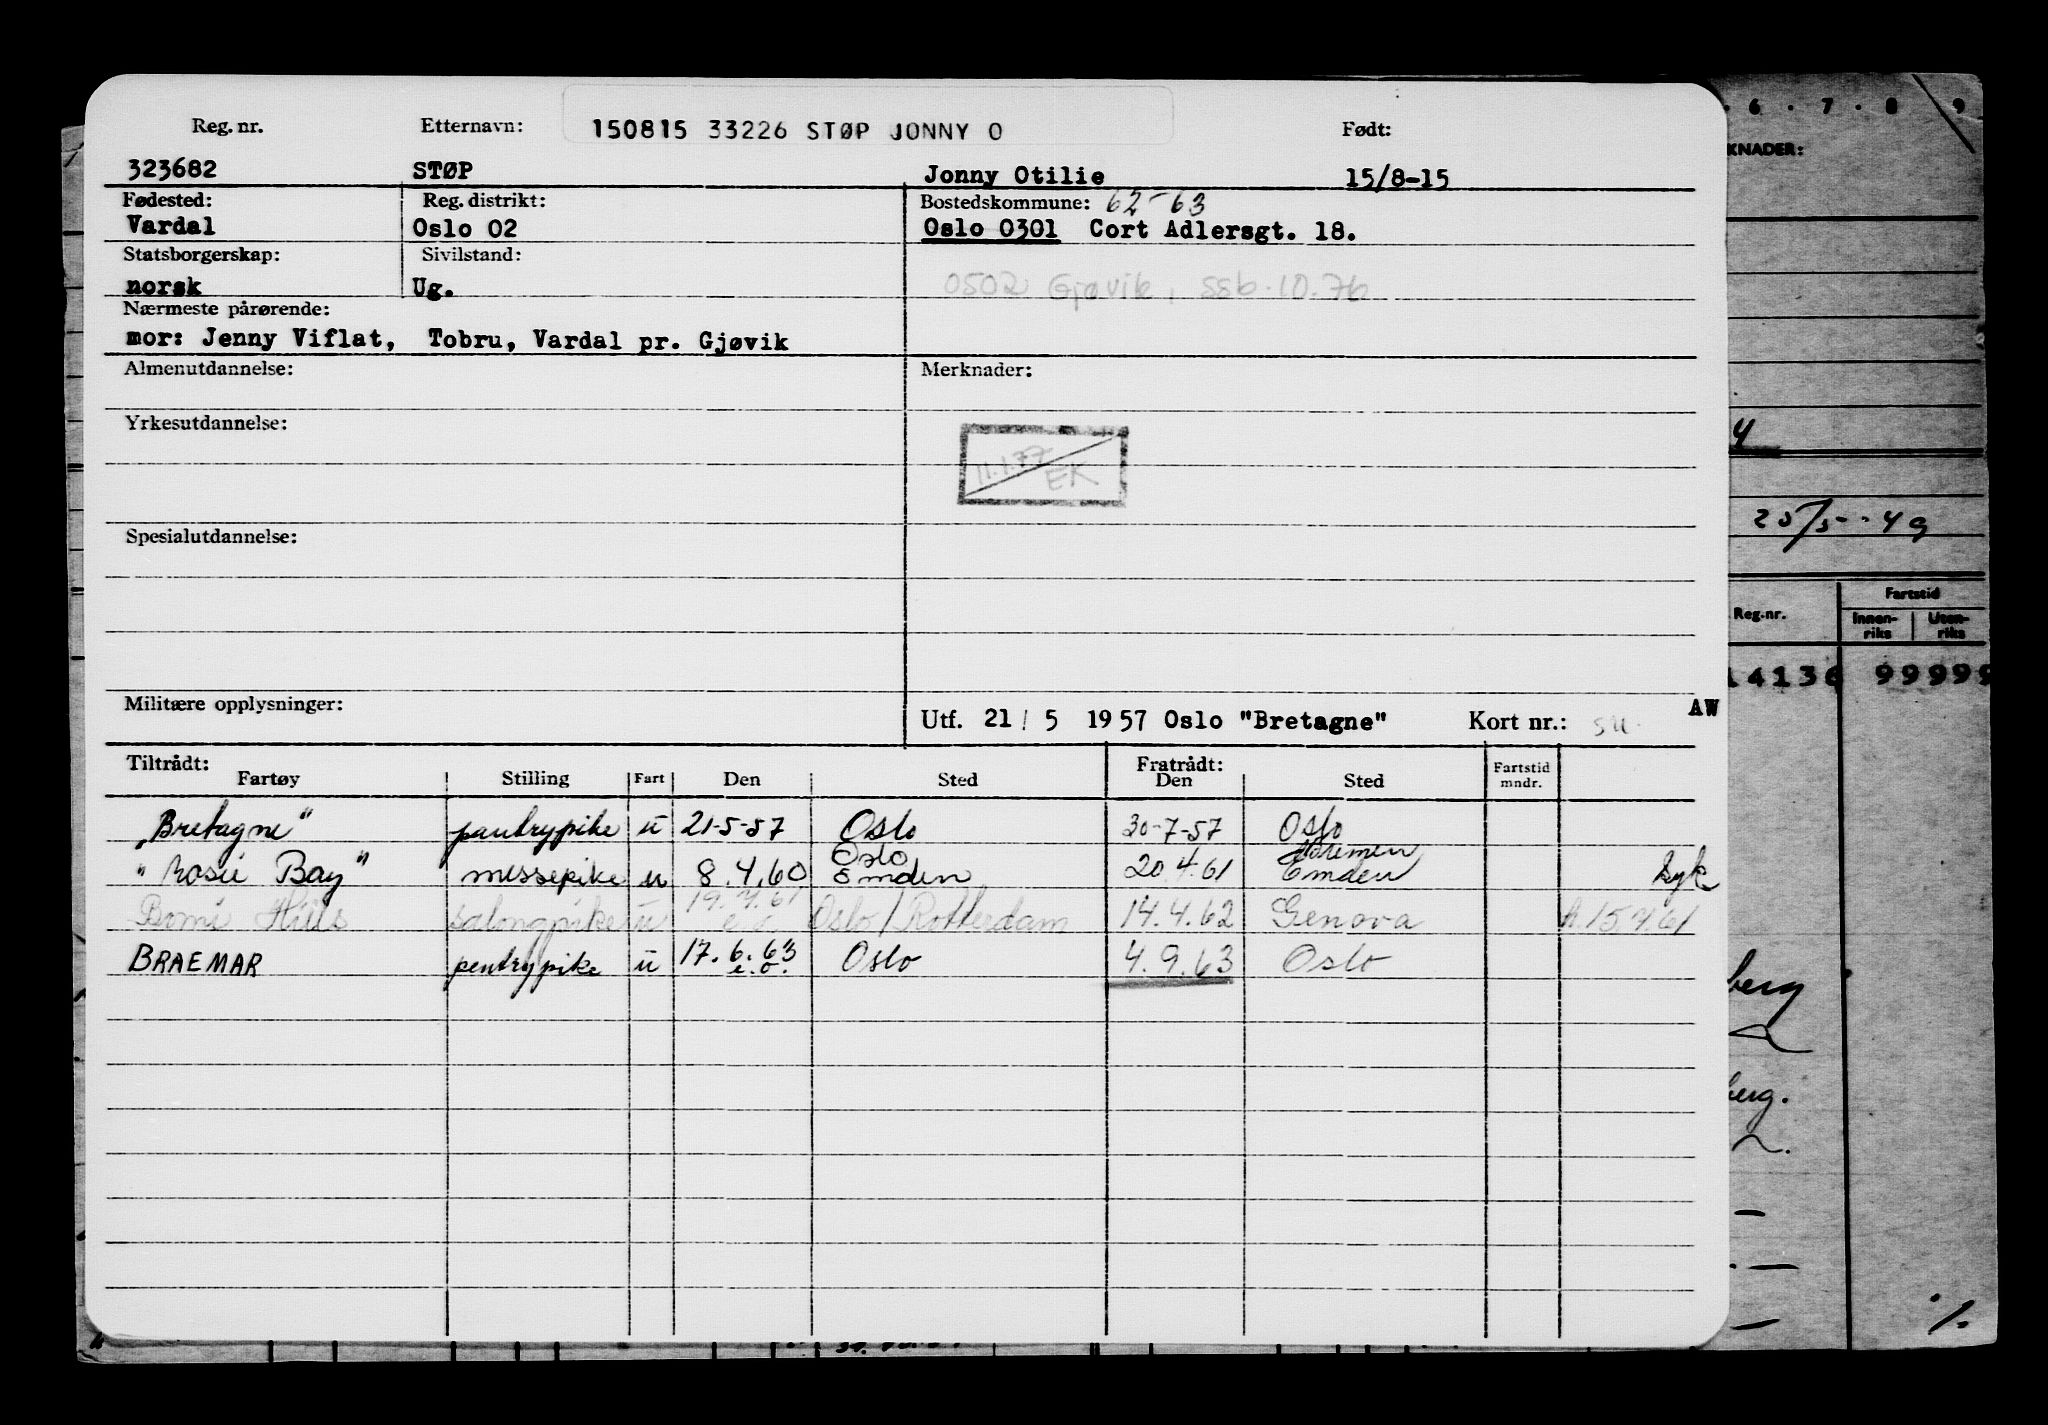 Reg. nr. Etternavn: 150815 33226 STØP JONNY O Født:
323682 STØP Jonny Otilie 15/8-15
Fødested: Reg. distrikt: Bostedskommune: 62-63
Vardal Oslo 02 Oslo 0301 Cort Adlersgt. 18.
Statsborgerskap: Sivilstand:
norsk Ug. 0502 Gjøvik, ssb. 10.76
Nærmeste pårørende:
mor: Jenny Viflat, Tobru, Vardal pr. Gjøvik
Almenutdannelse: Merknader:
Yrkesutdannelse:
11.1.77 EK
Spesialutdannelse:
Militære opplysninger:
Utf. 21/5 1957 Oslo "Bretagne" Kort nr.: AW
Tiltrådt: Fratrådt:
Fartøy Stilling Fart Den Sted Den Sted Fartstid mndr.
"Bretagne" pantrypike u 21-5-57 Oslo 30-7-57 Oslo
Oslo Bremen
"Rosie Bay" messepike u 8.4.60 Emden 20.4.61 Emden syk
19.7.61
Bomi Hills salongpike u e.o. Oslo/Rotterdam 14.4.62 Genova A.15.7.61
BRAEMAR pentrypike u 17.6.63 Oslo 4.9.63 Oslo
e.o.
6 . 7 . 8 9
KNADER:
4
25/5-49
Reg.-nr. Fartstid
Innen-riks Uten-riks
14136 99999
berg
berg.